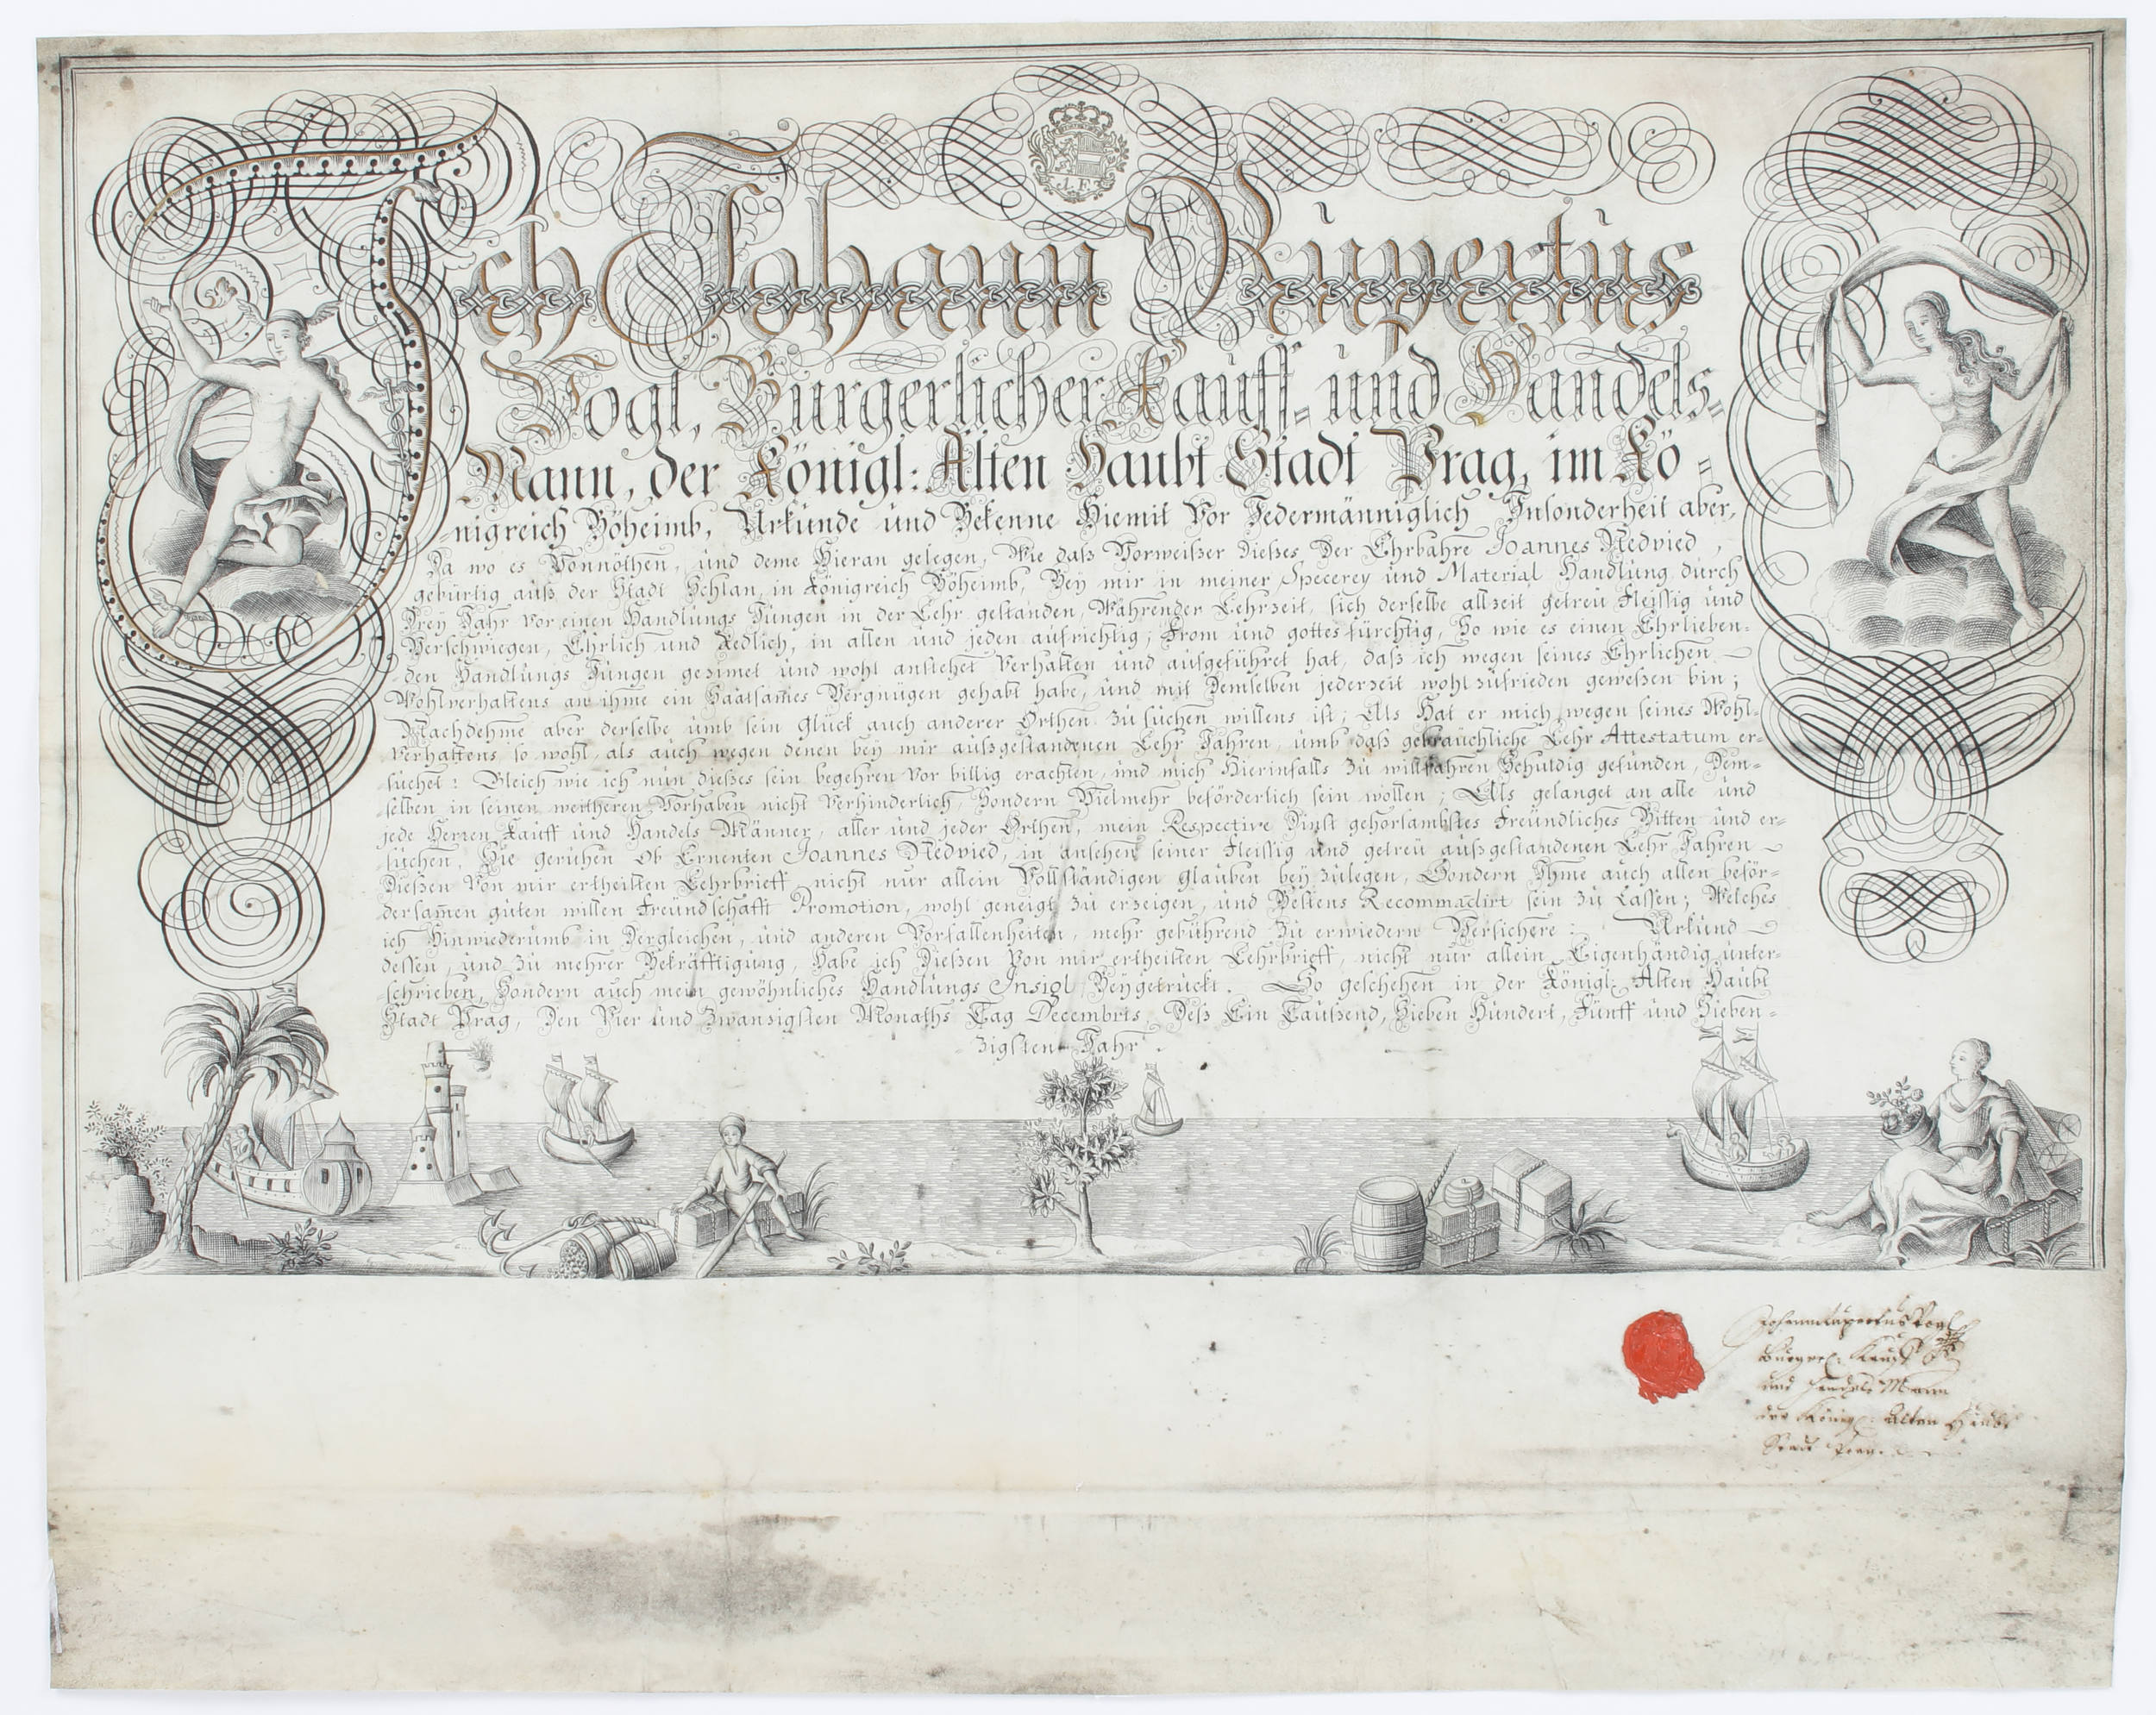 Ich Johann Rupertus
Vogl, Bürgerlicher Kauff= und Handels=
Mann, der Königl: Alten Haubt Stadt Prag, im Kö=
nigreich Böheimb, Urkunde und Bekenne Hiemit Vor Jedermänniglich Insonderheit aber,
Da wo es Vonnöthen, und deme Hieran gelegen, Wie daß Vorweißer Dießes, Der Ehrbahre Joannes Nedvied,
gebürtig auß der Stadt Schlan, in Königreich Böheimb, Bey mir in meiner Specerey und Material Handlung durch
Drey Jahr Vor einen Handlungs Jungen in der Lehr gestanden, Währender Lehrzeit, sich derselbe allzeit getreü Fleissig und
Verschwiegen, Ehrlich und Redlich, in allen und jeden aufrichtig, From und gottesfürchtig, So wie es einen Ehrlieben=
den Handlungs Jungen gezimet und wohl anstehet Verhalten und aufgeführet hat, daß ich wegen seines Ehrlichen
Wohlverhaltens an ihme ein Saatsames Vergnügen gehabt habe, und mit Demselben jederzeit wohl zufrieden geweßen bin;
Nachdehme aber derselbe umb sein Glück auch anderer Orthen zu suchen willens ist; Als Hat er mich wegen seines Wohl=
Verhaltens so wohl, als auch wegen denen bey mir außgestandenen Lehr Jahren, umb daß gebräuchliche Lehr Attestatum er=
suchet: Gleich wie ich nun dießes sein begehren Vor billig erachten, und mich Hierinfalls zu willfahren Schuldig gefunden, Dem=
selben in seinen weitheren Vorhaben nicht Verhinderlich, Sondern Vielmehr beförderlich sein wollen; Als gelanget an alle und
jede Herren Kauff und Handels Männer, aller und jeder Orthen, mein Respective Dinst gehorsambstes Freündliches Bitten und er=
suchen, Sie geruhen Ob Ernenten Joannes Nedvied, in ansehen seiner Fleissig und getreü außgestandenen Lehr Jahren
Dießen Von mir ertheilten Lehrbrieff nicht nur allein Vollständigen Glauben bey zulegen, Sondern Ihme auch allen beför=
dersamen guten willen Freündschafft Promotion, wohl geneigt zu erzeigen, und Bestens Recommadirt sein zu Lassen; Welches
ich Hinwiederumb in Dergleichen, und anderen Vorfallenheiten, mehr gebührend zu erwiedern Versichere: Urkund
dessen, und zu mehrer Bekräfftigung, Habe ich Dießen Von mir ertheilten Lehrbrieff, nicht nur allein Eigenhändig unter=
schrieben, Sondern auch mein gewöhnliches Handlungs Insigl Beygetruckt. So geschehen in der Königl: Alten Haubt
Stadt Prag, Den Vier und Zwanzigsten Monaths Tag Decembris, Deß Ein Taußend, Sieben Hundert, Fünff und Sieben=
zigsten Jahr
Johann Rupertus Vogl
Burgerl: Kauff
und Handels Mann
der Königl: Alten Haubt
Stadt Prag